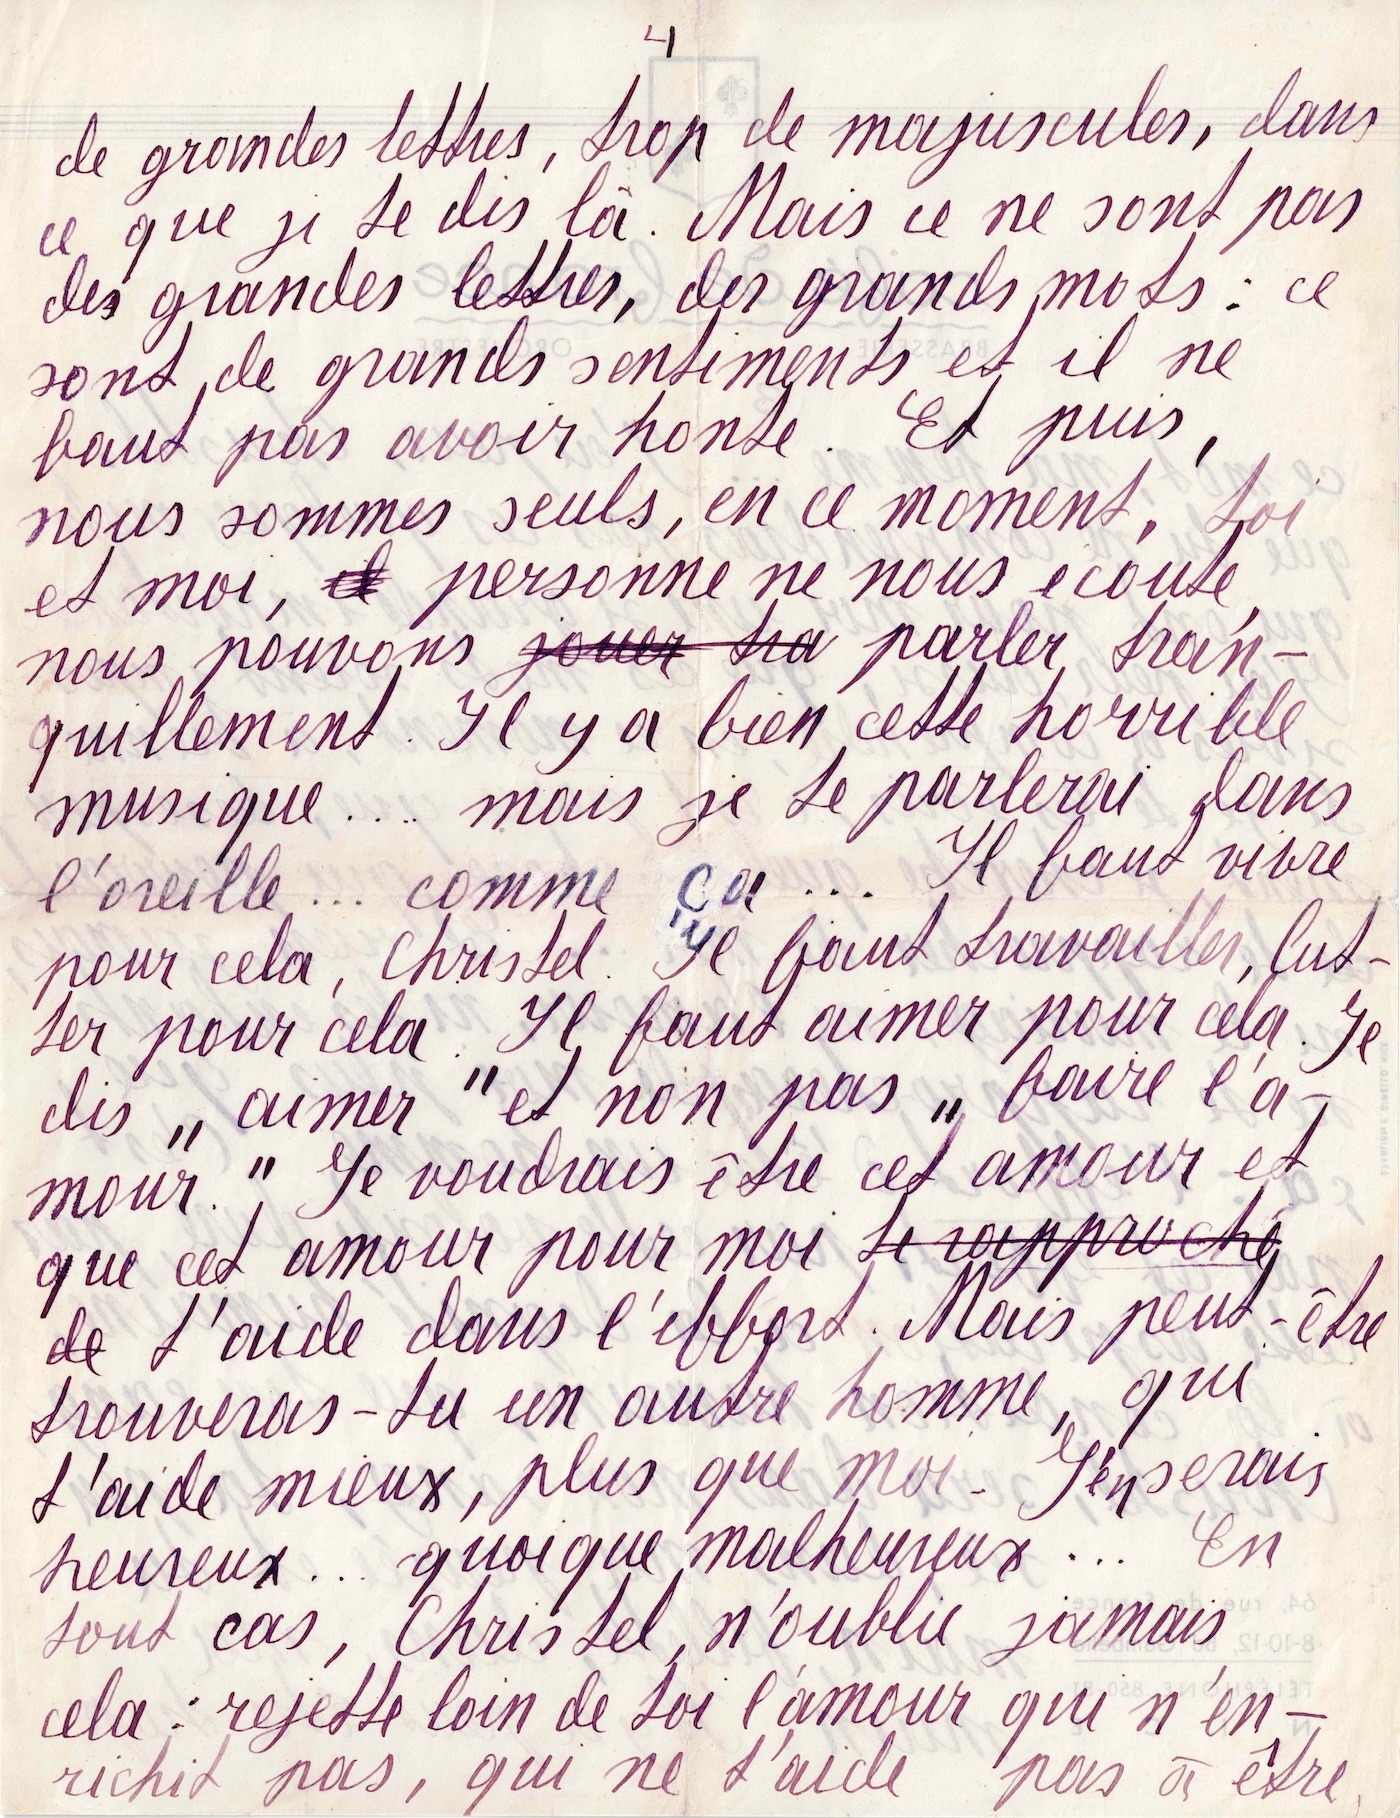 4
de grandes lettres, trop de majuscules, dans
ce que je te dis là. Mais ce ne sont pas
des grandes lettres, des grands mots : ce
sont de grands sentiments et il ne
faut pas avoir honte. Et puis,
nous sommes seuls, en ce moment, toi
et moi, et personne ne nous écoute,
nous pouvons jouer tra parler tran-
quillement. Il y a bien cette horrible
musique.... mais je te parlerai dans
l'oreille... comme ça.... Il faut vivre
pour cela, Christel. Il faut travailler, lut-
ter pour cela. Il faut aimer pour cela. Je
dis „aimer" et non pas „faire l'a-
mour." Je voudrais être cet amour et
que cet amour pour moi te rapproche
de t'aide dans l'effort. Mais peut-être
trouveras-tu un autre homme, qui
t'aide mieux, plus que moi. J'en serais
heureux... quoique malheureux... En
tout cas, Christel, n'oublie jamais
cela : rejette loin de toi l'amour qui n'en-
richit pas, qui ne t'aide pas à être
BRASSERIE
ORCHESTRE
64, rue de france
8-10-12,
TÉLÉPHONE 850-81